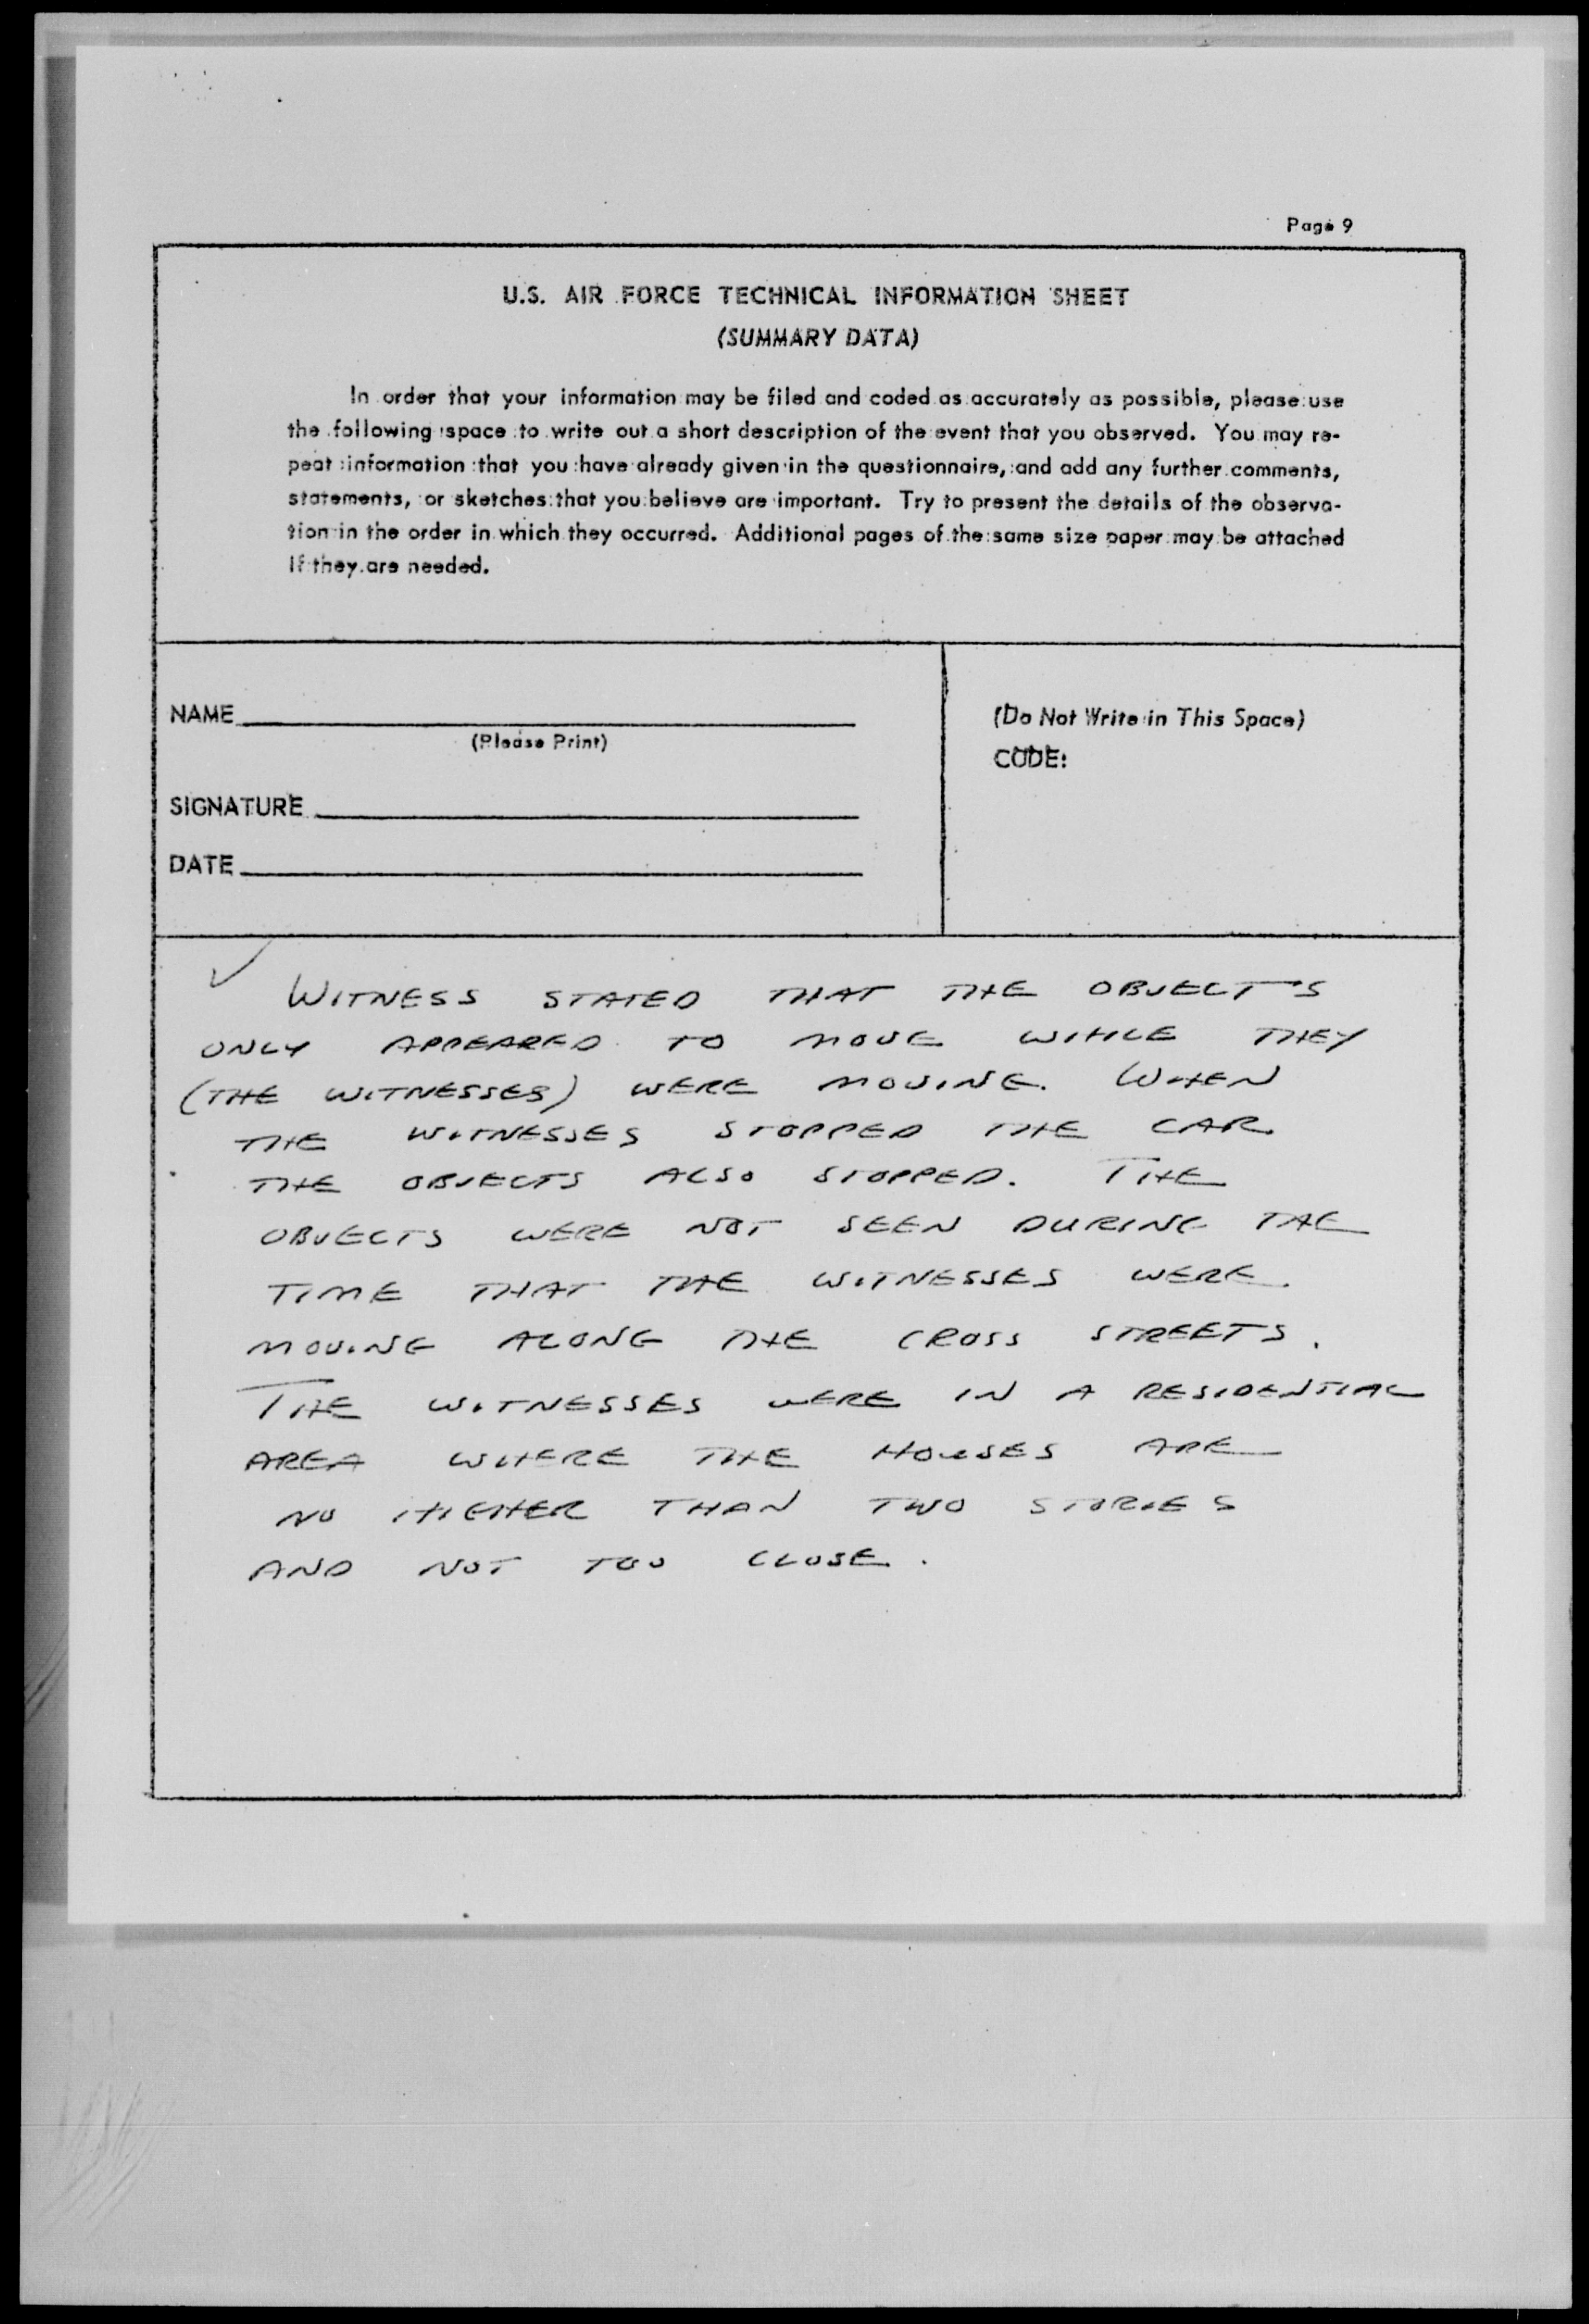 Page 9
U.S. AIR FORCE TECHNICAL INFORMATION SHEET
(SUMMARY DATA)
In order that your information may be filed and coded as accurately as possible, please use
the following space to write out a short description of the event that you observed. You may re-
peat information that you have already given in the questionnaire, and add any further comments,
statements, or sketches that you believe are important. Try to present the details of the observa-
tion in the order in which they occurred. Additional pages of the same size paper may be attached
if they are needed.
NAME
(Please Print)
SIGNATURE
DATE
(Do Not Write in This Space)
CODE:
WITNESS STATED THAT THE OBJECTS
ONLY APPEARED TO MOVE WHILE THEY
(THE WITNESSES) WERE MOVING. WHEN
THE WITNESSES STOPPED THE CAR
THE OBJECTS ALSO STOPPED. THE
OBJECTS WERE NOT SEEN DURING THE
TIME THAT THE WITNESSES WERE
MOVING ALONG THE CROSS STREETS.
THE WITNESSES WERE IN A RESIDENTIAL
AREA WHERE THE HOUSES ARE
NO HIGHER THAN TWO STORIES
AND NOT TOO CLOSE.